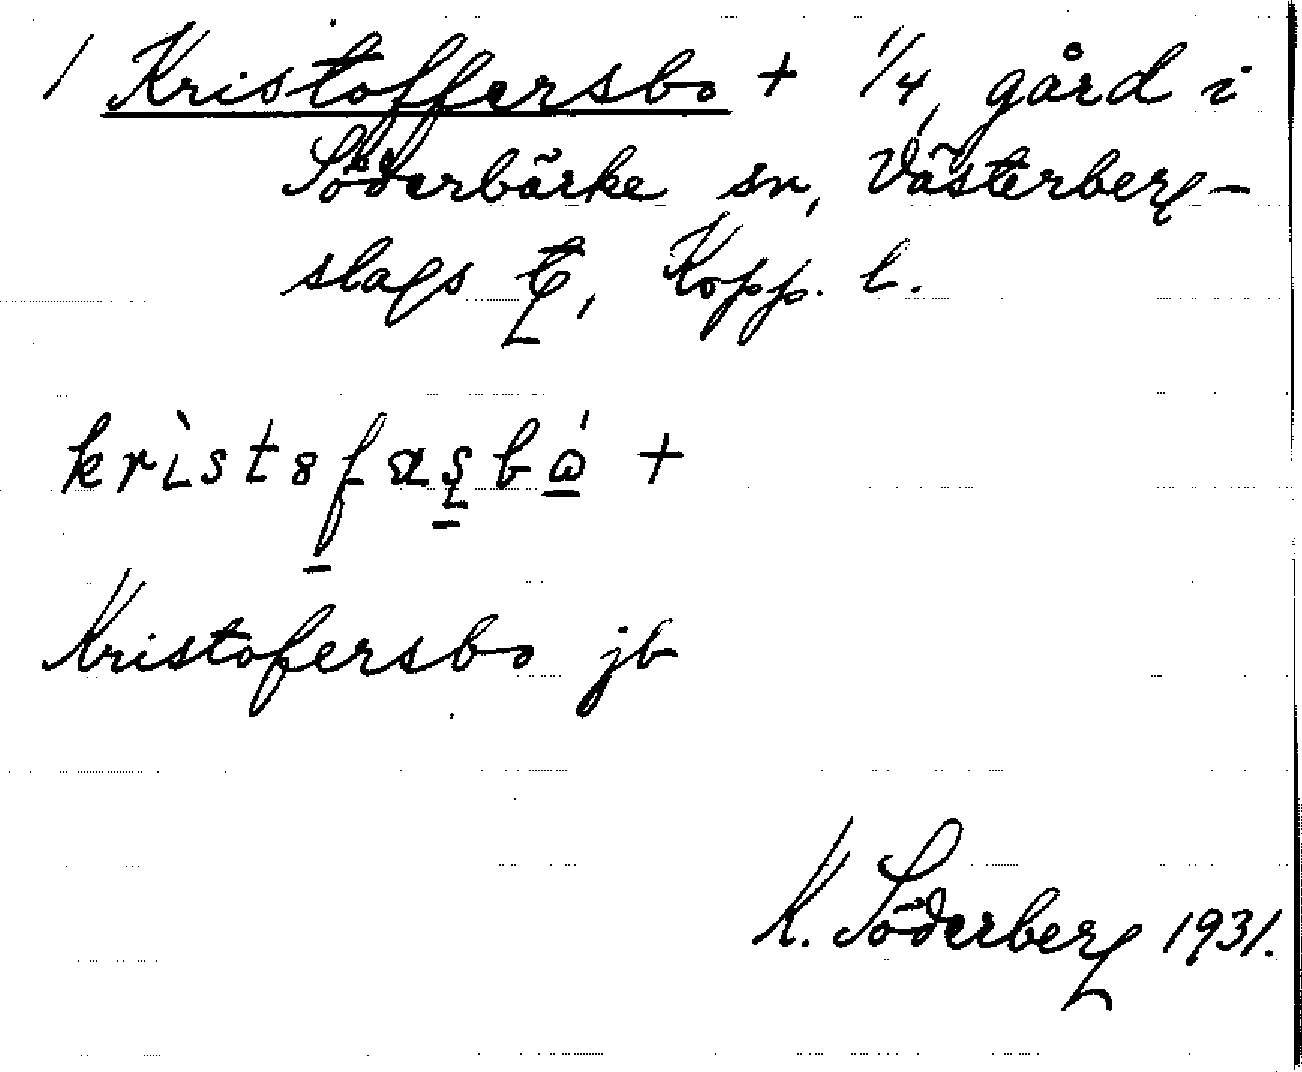 1 Kristoffersbo + 1/4 gård i
Söderbärke sn, Västerberg-
slags t, Kopp. l.
krìstofas̨bó +
Kristofersbo jb
K. Söderberg 1931.